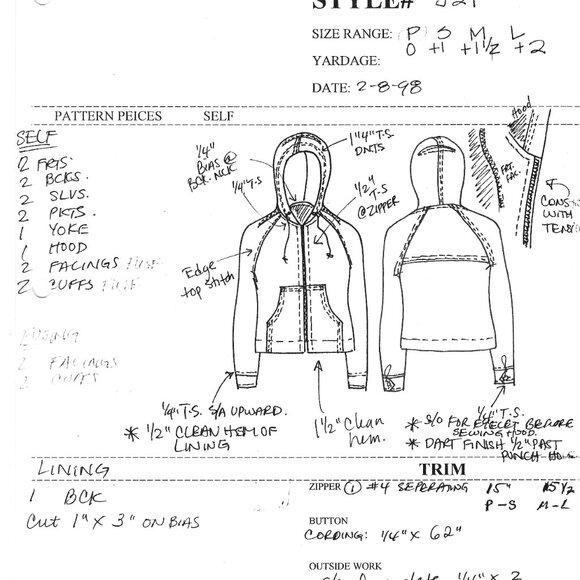 STYLE#
SIZE RANGE: P S M L
0 +1 +1 1/2 +2
YARDAGE:
DATE: 2-8-98
PATTERN PEICES SELF
SELF
2 FRTS.
2 BCKS.
2 SLVS.
2 PKTS.
1 YOKE
1 HOOD
2 FACINGS
2 CUFFS
FUSING
2 FACINGS
2 CUFFS
1/4"
BIAS @
BCK. NCK
1/4" T.S
1" 1/4" T.S
1/2"
T-S
@ZIPPER
Edge
top stitch
Hood
FRT.
FAC.
WITH
1/4" T.S. S/A UPWARD.
* 1/2" CLEAN HEM OF
LINING
1 1/2" Clean
hem.
1/4" T.S.
* S/O FOR EYELET BEFORE
SEWING HOOD.
* DART FINISH 1/2" PAST
PUNCH
LINING
1 BCK
Cut 1" x 3" ON BIAS
TRIM
ZIPPER 1 #4 SEPERATING 15" 15 1/2
P-S M-L
BUTTON
CORDING: 1/4" x 62"
OUTSIDE WORK